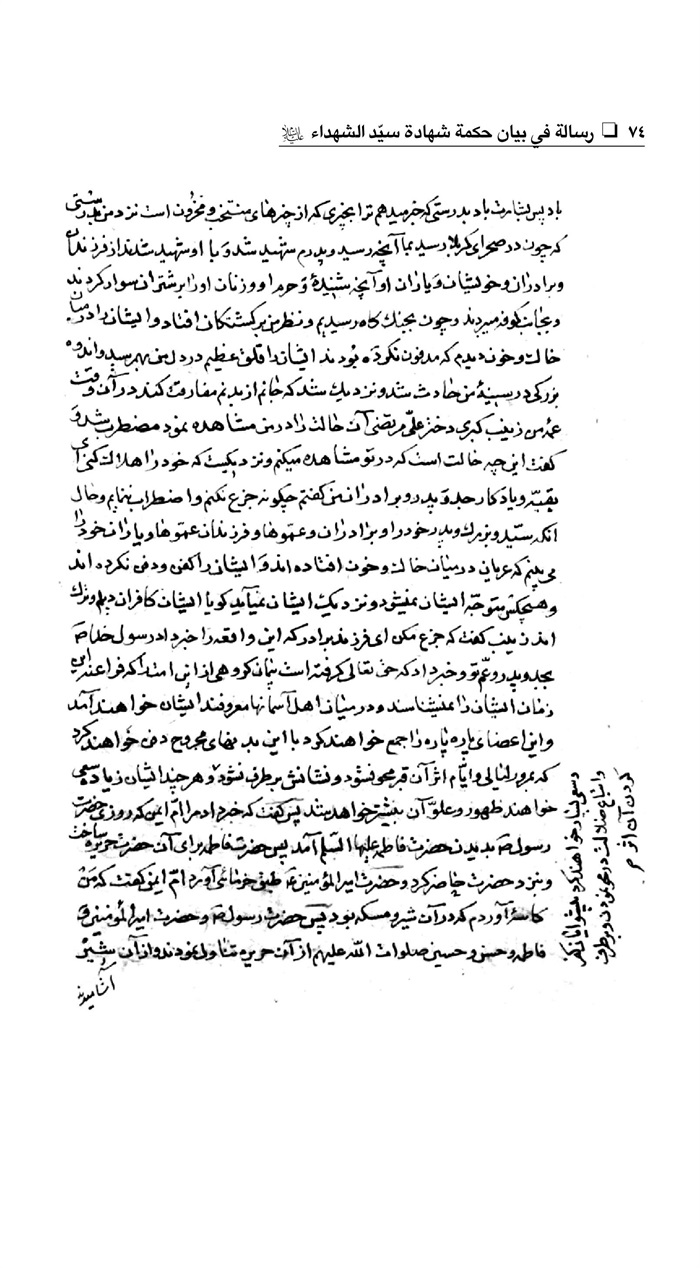 ٧٤ ❏ رسالة في بيان حكمة شهادة سيّد الشهداء عليه السلام
باد پس بشارت باد بدرستی که خبر میدهم ترا بچیزی که از چیزهای منتخب و مخزون است نزد من بدرستی
که چون در صحرای کربلا رسید بما آنچه رسید و پدرم شهید شد و با او شهید شدند از فرزندان
و برادران و خویشان و یاران او آنچه شنیدهٔ و حرم او و زنان او را بر شتران سوار کردند
و بجانب کوفه میبردند و چون بجنك کاه رسیدیم و نظر من بر کشتکان افتاد و ایشان را در میان
خاك و خون دیدم که مدفون نکرده بودند ایشان را قلق عظیم در دل من بهم رسید و اندوه
بزرکی در سینهٔ من حادث شد و نزدیك شد که جانم از بدنم مفارقت کند در آن وقت
عمهٔ من زینب کبری دختر علی مرتضی آن حالت را در من مشاهده نمود مضطرب شد و
کفت این چه حالت است که در تو مشاهده میکنم و نزدیکست که خود را هلاك کنی ای
بقیّه و یادکار جد و پدر و برادران من کفتم چکونه جزع نکنم و اضطراب ننمایم و حال
آنکه سیّد و بزرك و پدر خود را و برادران و عموها و فرزندان عموها و یاران خود را
می بینم که عریان در میان خاك و خون افتاده اند و ایشان را کفن و دفن نکرده اند
و هیچکس متوجّه ایشان نمیشود و نزدیك ایشان نمیآید کویا ایشان کافران دیلم و ترك
اند زینب کفت که جزع مکن ای فرزند برادر که این واقعه را خبر داد رسول خدا ص
بجد و پدر و عمّ تو و خبر داد که حق تعالی کرفته است پیمان کروهی از این امت را که فراعنه این
زمان ایشان را نمیشناسند و در میان اهل آسمانها معروفند ایشان خواهند آمد
و این اعضای پاره پاره را جمع خواهند کرد با این بدنهای مجروح دفن خواهند کرد
که بمرور لیالی و ایام اثر آن قبر محو نشود و نشانش بر طرف نشود و هر چند ایشان زیاده سعی
خواهند ظهور و علوّ آن بیشتر خواهد شد پس کفت که خبر داد مرا امّ ایمن که روزی حضرت
رسول ص بدیدن حضرت فاطمه علیها السلم آمد پس حضرت فاطمه برای آن حضرت حریره ساخت
و نزد حضرت حاضر کرد و حضرت امیر المؤمنین ع طبق خرمائی آورد امّ ایمن کفت که من
کاسهٔ آوردم که در آن شیر و مسکه بود پس حضرت رسول ص و حضرت امیر المؤمنین و
فاطمه و حسن و حسین صلوات الله علیهم از آن حریره تناول نمودند و از آن شیر
آشامیدند
و سعی بسیار خواهند کرد پیشوایان کفر
و اتباع ضلالت در محو نمودن و بر طرف
کردن آن اثر م